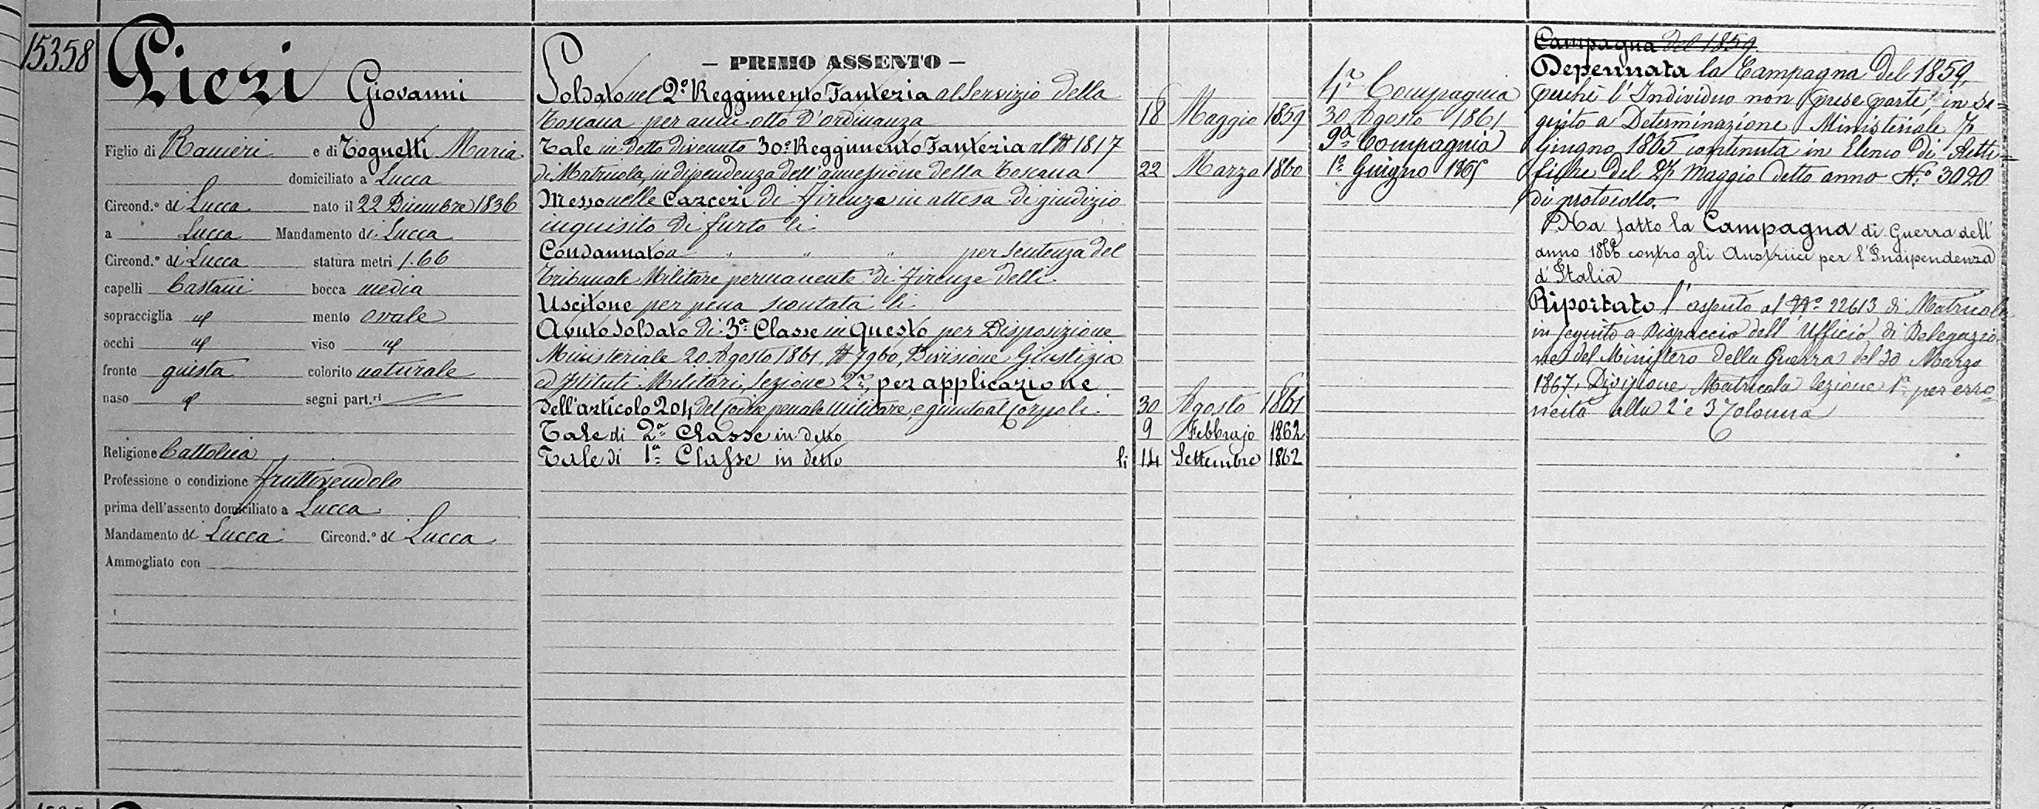 15358
Pieri Giovanni
Figlio di Ranieri e di Tognetti Maria
domiciliato a Lucca
Circond.º di Lucca nato il 22 Dicembre 1836
a Lucca Mandamento di Lucca
Circond.º di Lucca statura metri 1.66
capelli Castani bocca media
sopracciglia id mento ovale
occhi id viso id
fronte giusta colorito naturale
naso id segni part.ri
Religione Cattolica
Professione o condizione fruttivendolo
prima dell'assento domiciliato a Lucca
Mandamento di Lucca Circond.º di Lucca
Ammogliato con
– PRIMO ASSENTO –
Soldato nel 2º Reggimento Fanteria al servizio della
Toscana per anni otto d'ordinanza 18 Maggio 1859
Tale in detto divenuto 30º Reggimento Fanteria al Nº 1817
di Matricola, in dipendenza dell'annessione della Toscana 22 Marzo 1860
Messo nelle Carceri di Firenze in attesa di giudizio
inquisito di furto li
Condannato a " " per sentenza del
Tribunale Militare permanente di Firenze delli
Uscitone per pena scontata li
Avuto Soldato di 3ª Classe in Questo per Disposizione
Ministeriale 20 Agosto 1861, Nº 7960, Divisione Giustizia
ed Istituti Militari, Sezione 2ª, per applicazione
dell'articolo 204 del Codice penale Militare, e giunto al Corpo li 30 Agosto 1861
Tale di 2ª Classe in detto 9 Febbrajo 1862
Tale di 1ª Classe in detto li 14 Settembre 1862
4ª Compagnia
30 Agosto 1861
9ª Compagnia
1º Giugno 1865
Campagna del 1859.
Depennata la Campagna del 1859,
perchè l'Individuo non prese parte in se-
guito a Determinazione Ministeriale 7
Giugno 1865 contenuta in Elenco di Retti-
fiche del 27 Maggio detto anno Nº 3020
di protocollo.
Ha fatto la Campagna di Guerra dell'
anno 1866 contro gli Austriaci per l'Indipendenza
d'Italia
Riportato l'assento al Nº 22613 di Matricola
in seguito a Dispaccio dell'Ufficio di Delegazio-
ne del Ministero della Guerra del 30 Marzo
1867, Divisione Matricola Sezione 1ª per erro-
neità alla 2ª e 3ª Colonna